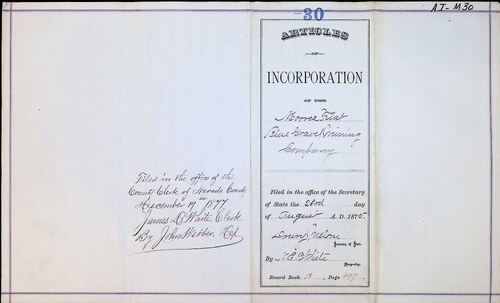 30
AI-M30
ARTICLES
OF
INCORPORATION
OF THE
Moore's Flat
Blue Gravel Mining
Company
Filed in the office of the Secretary
of State the 23rd day
of August A. D. 1875
Secretary of State.
By W. E. White
Deputy.
Record Book 13, Page 487
Filed in the office of the
County Clerk of Nevada County
December 19th 1877
James D White, Clerk
By John Webber, Dp